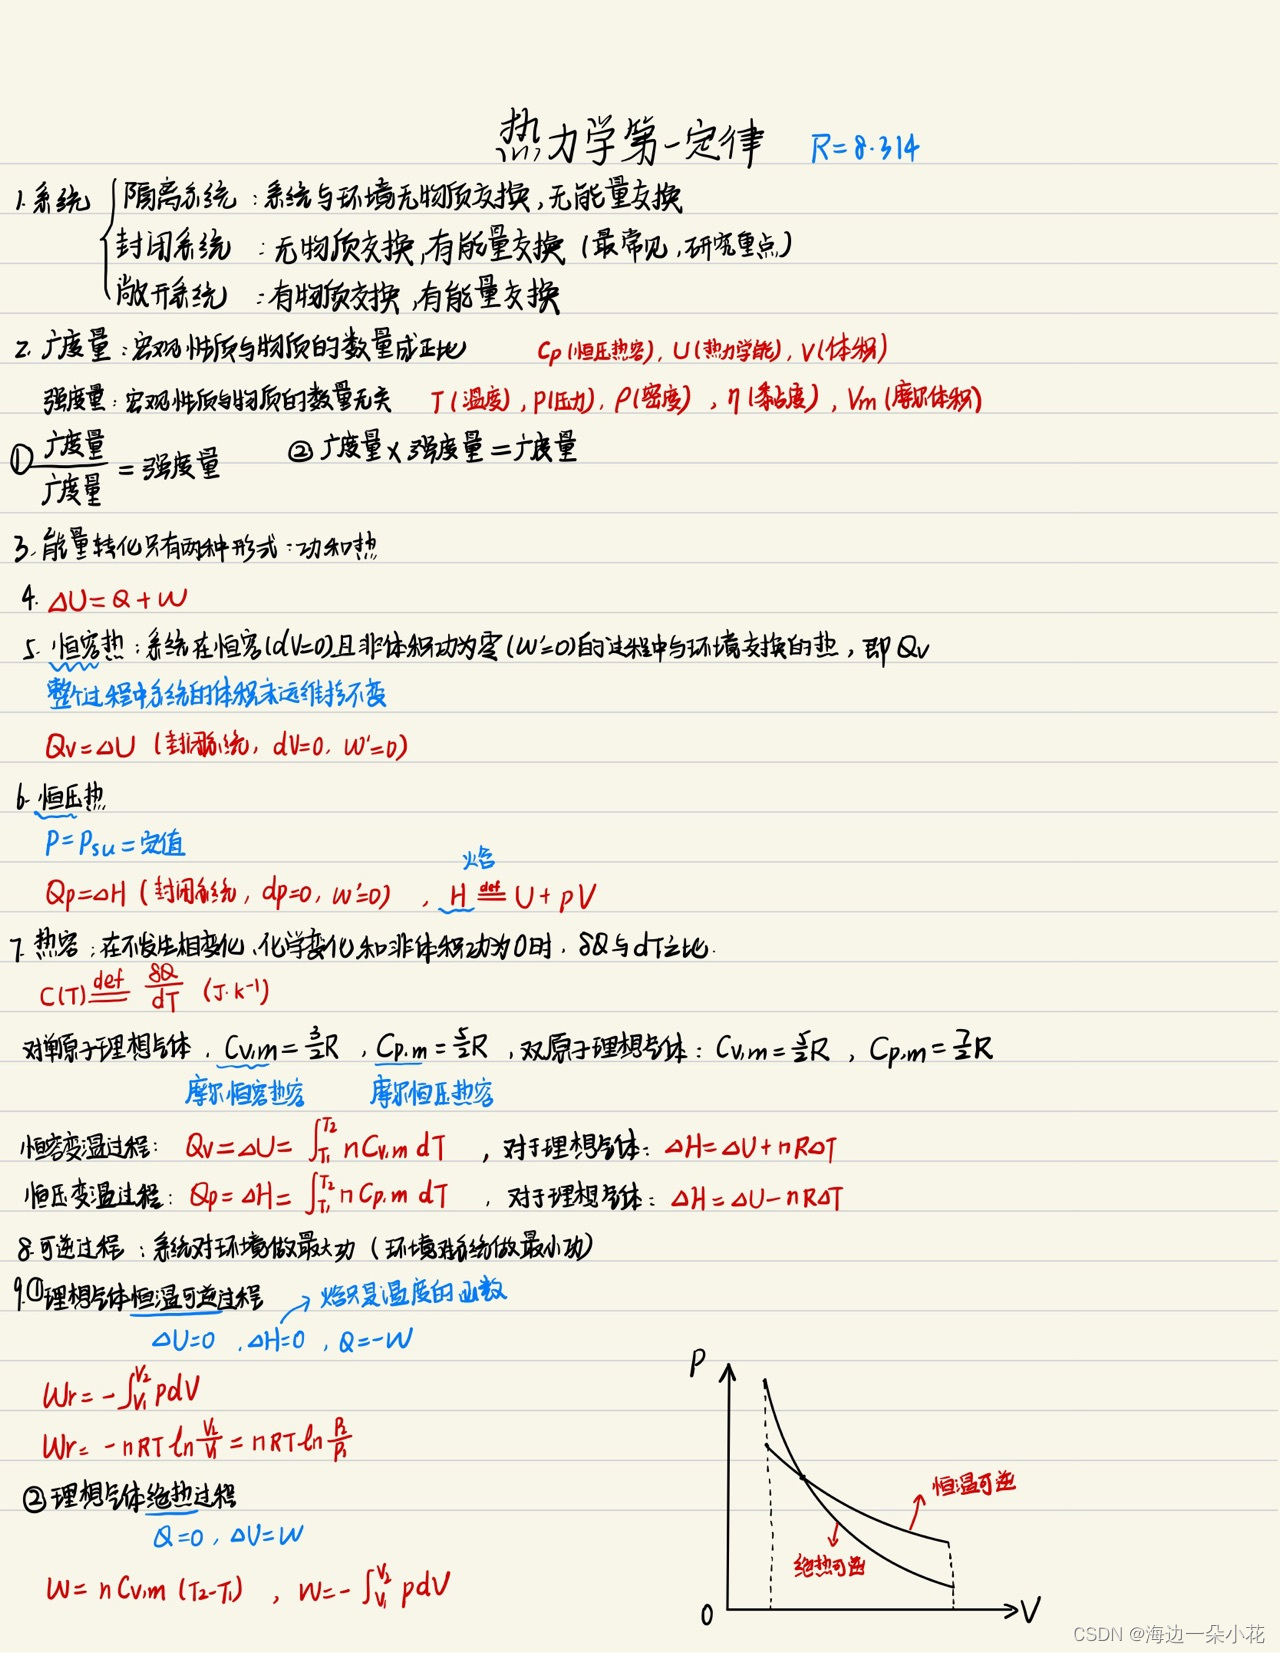 热力学第一定律 R=8.314
1.系统 { 隔离系统:系统与环境无物质交换,无能量交换
封闭系统 :无物质交换,有能量交换(最常见,研究重点)
敞开系统 :有物质交换,有能量交换
2.广度量:宏观性质与物质的数量成正比 Cp(恒压热容),U(热力学能),V(体积)
强度量:宏观性质与物质的数量无关 T(温度),P(压力),ρ(密度),η(黏度),Vm(摩尔体积)
① 广度量/广度量 = 强度量 ② 广度量×强度量=广度量
3.能量转化只有两种形式:功和热
4. ΔU=Q+W
5. 恒容热:系统在恒容(dV=0)且非体积功为零(W'=0)的过程中与环境交换的热,即Qv
整个过程中系统的体积永远维持不变
Qv=ΔU (封闭系统, dV=0, W'=0)
6.恒压热
P=Psu=定值
焓
Qp=ΔH (封闭系统, dp=0, W'=0) , H def U+pV
7.热容:在不发生相变化、化学变化和非体积功为0时,δQ与dT之比.
C(T) def δQ/dT (J·k⁻¹)
对单原子理想气体,Cv,m=3/2R ,Cp,m=5/2R ,双原子理想气体:Cv,m=5/2R ,Cp,m=7/2R
摩尔恒容热容 摩尔恒压热容
恒容变温过程: Qv=ΔU=∫T1T2 nCv,m dT ,对于理想气体:ΔH=ΔU+nRΔT
恒压变温过程:Qp=ΔH=∫T1T2 nCp,m dT ,对于理想气体:ΔH=ΔU-nRΔT
8.可逆过程:系统对环境做最大功(环境对系统做最小功)
9.①理想气体恒温可逆过程 → 焓只是温度的函数
ΔU=0 ,ΔH=0 ,Q=-W
Wr=-∫V1V2 pdV
Wr=-nRT ln V2/V1 = nRT ln P2/P1
②理想气体绝热过程
Q=0,ΔU=W
W=nCv,m(T2-T1) , W=-∫V1V2 pdV
P
恒温可逆
绝热可逆
0
V
CSDN @海边一朵小花